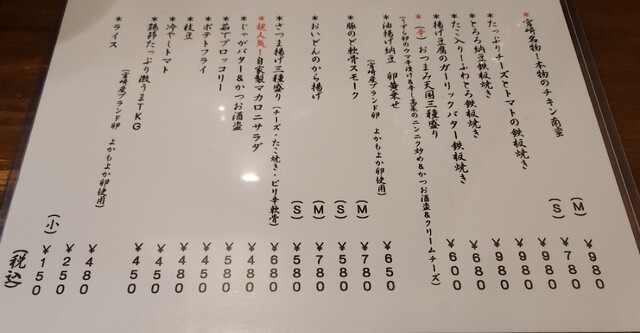 *宮崎名物!本物のチキン南蛮
(M) ¥980
(S) ¥780
*たっぷりチーズとトマトの鉄板焼き ¥980
*とろろ納豆鉄板焼き ¥980
*たこ入りふわとろ鉄板焼き ¥980
*揚げ豆腐のガーリックバター鉄板焼き ¥680
*(辛)おつまみ天国三種盛り ¥600
(うずら卵のウマ辛漬け&辛し高菜のニンニク炒め&かつお酒盗&クリームチーズ)
*油揚げ納豆 卵黄乗せ ¥650
(宮崎産ブランド卵 よかもよか卵使用)
*豚のど軟骨スモーク
(M) ¥780
(S) ¥580
*おいどんのから揚げ
(M) ¥780
(S) ¥580
*さつま揚げ三種盛り(チーズ・たこ焼き・ピリ辛軟骨) ¥680
*超人気!自家製マカロニサラダ ¥480
*じゃがバター&かつお酒盗 ¥580
*茹でブロッコリー ¥450
*ポテトフライ ¥480
*枝豆 ¥450
*冷やしトマト ¥450
*鶏節たっぷり激うまTKG ¥480
(宮崎産ブランド卵 よかもよか卵使用)
*ライス ¥250
(小) ¥150
(税込)